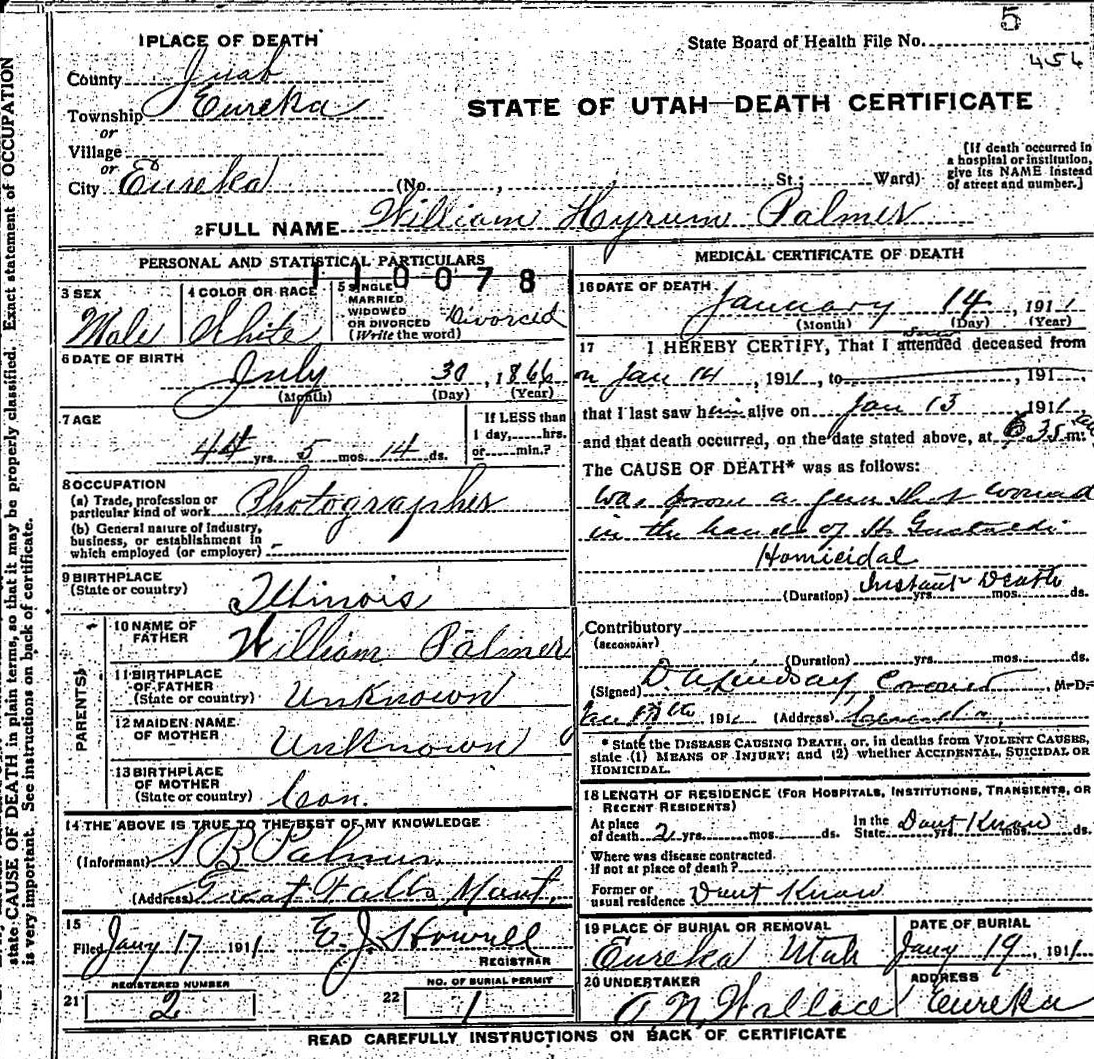 5
State Board of Health File No.
456
1 PLACE OF DEATH
County Juab
Township Eureka
or
Village
or
City Eureka (No. , , St.; Ward)
STATE OF UTAH—DEATH CERTIFICATE
[If death occurred in
a hospital or institution,
give its NAME instead
of street and number.]
2 FULL NAME William Hyrum Palmer
PERSONAL AND STATISTICAL PARTICULARS
110078
3 SEX
Male
4 COLOR OR RACE
White
5 SINGLE
MARRIED
WIDOWED
OR DIVORCED
(Write the word)
Divorced
6 DATE OF BIRTH
July 30, 1866
(Month) (Day) (Year)
7 AGE
44 yrs. 5 mos. 14 ds.
If LESS than
1 day, hrs.
or min.?
8 OCCUPATION
(a) Trade, profession or
particular kind of work Photographer
(b) General nature of industry,
business, or establishment in
which employed (or employer) -
9 BIRTHPLACE
(State or country)
Illinois
PARENTS
10 NAME OF
FATHER
William Palmer
11 BIRTHPLACE
OF FATHER
(State or country)
Unknown
12 MAIDEN NAME
OF MOTHER
Unknown
13 BIRTHPLACE
OF MOTHER
(State or country)
Con.
14 THE ABOVE IS TRUE TO THE BEST OF MY KNOWLEDGE
(Informant) Palmer
(Address) Great Falls Mont.
15
Filed Jany 17 1911 E. J. Howell
REGISTRAR
REGISTERED NUMBER
21 2
NO. OF BURIAL PERMIT
22 1
MEDICAL CERTIFICATE OF DEATH
16 DATE OF DEATH
January 14, 1911
(Month) (Day) (Year)
17 I HEREBY CERTIFY, That I attended deceased from
on Jan 14, 1911, to , 191
that I last saw him alive on Jan 13 1911
and that death occurred, on the date stated above, at 6 35 m.
The CAUSE OF DEATH* was as follows:
was from a gun shot wound
in the hands of
Homicidal
Instant Death
(Duration) yrs. mos. ds.
Contributory
(SECONDARY)
(Duration) yrs. mos. ds.
(Signed) D. A. Lindsay, Coroner, M.D.
Jan , 191 (Address) Eureka,
* State the DISEASE CAUSING DEATH, or, in deaths from VIOLENT CAUSES,
state (1) MEANS OF INJURY; and (2) whether ACCIDENTAL, SUICIDAL OR
HOMICIDAL.
18 LENGTH OF RESIDENCE (FOR HOSPITALS, INSTITUTIONS, TRANSIENTS, OR
RECENT RESIDENTS)
At place
of death 2 yrs. mos. ds. In the
State Dont Know yrs. mos. ds.
Where was disease contracted.
if not at place of death?
Former or
usual residence Dont Know
19 PLACE OF BURIAL OR REMOVAL
Eureka Utah
DATE OF BURIAL
Jany 19, 1911
20 UNDERTAKER
A. N. Wallace
ADDRESS
Eureka
READ CAREFULLY INSTRUCTIONS ON BACK OF CERTIFICATE
state CAUSE OF DEATH in plain terms, so that it may be properly classified. Exact statement of OCCUPATION
is very important. See instructions on back of certificate.